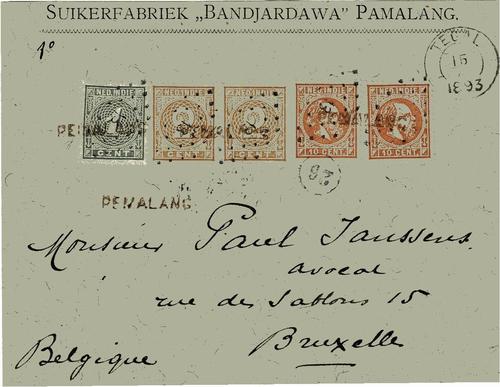 SUIKERFABRIEK „BANDJARDAWA” PAMALANG.
1º
TEGAL
15
1893
NED-INDIE NED-INDIE NED-INDIE NED. INDIE NED. INDIE
1 2 2
CENT CENT. CENT. 10 CENT. 10 CENT.
PEMALANG PEMALANG PEMALANG
PEMALANG
Monsieur Paul Janssens.
avocat
rue des Sablons 15
Bruxelles
Belgique